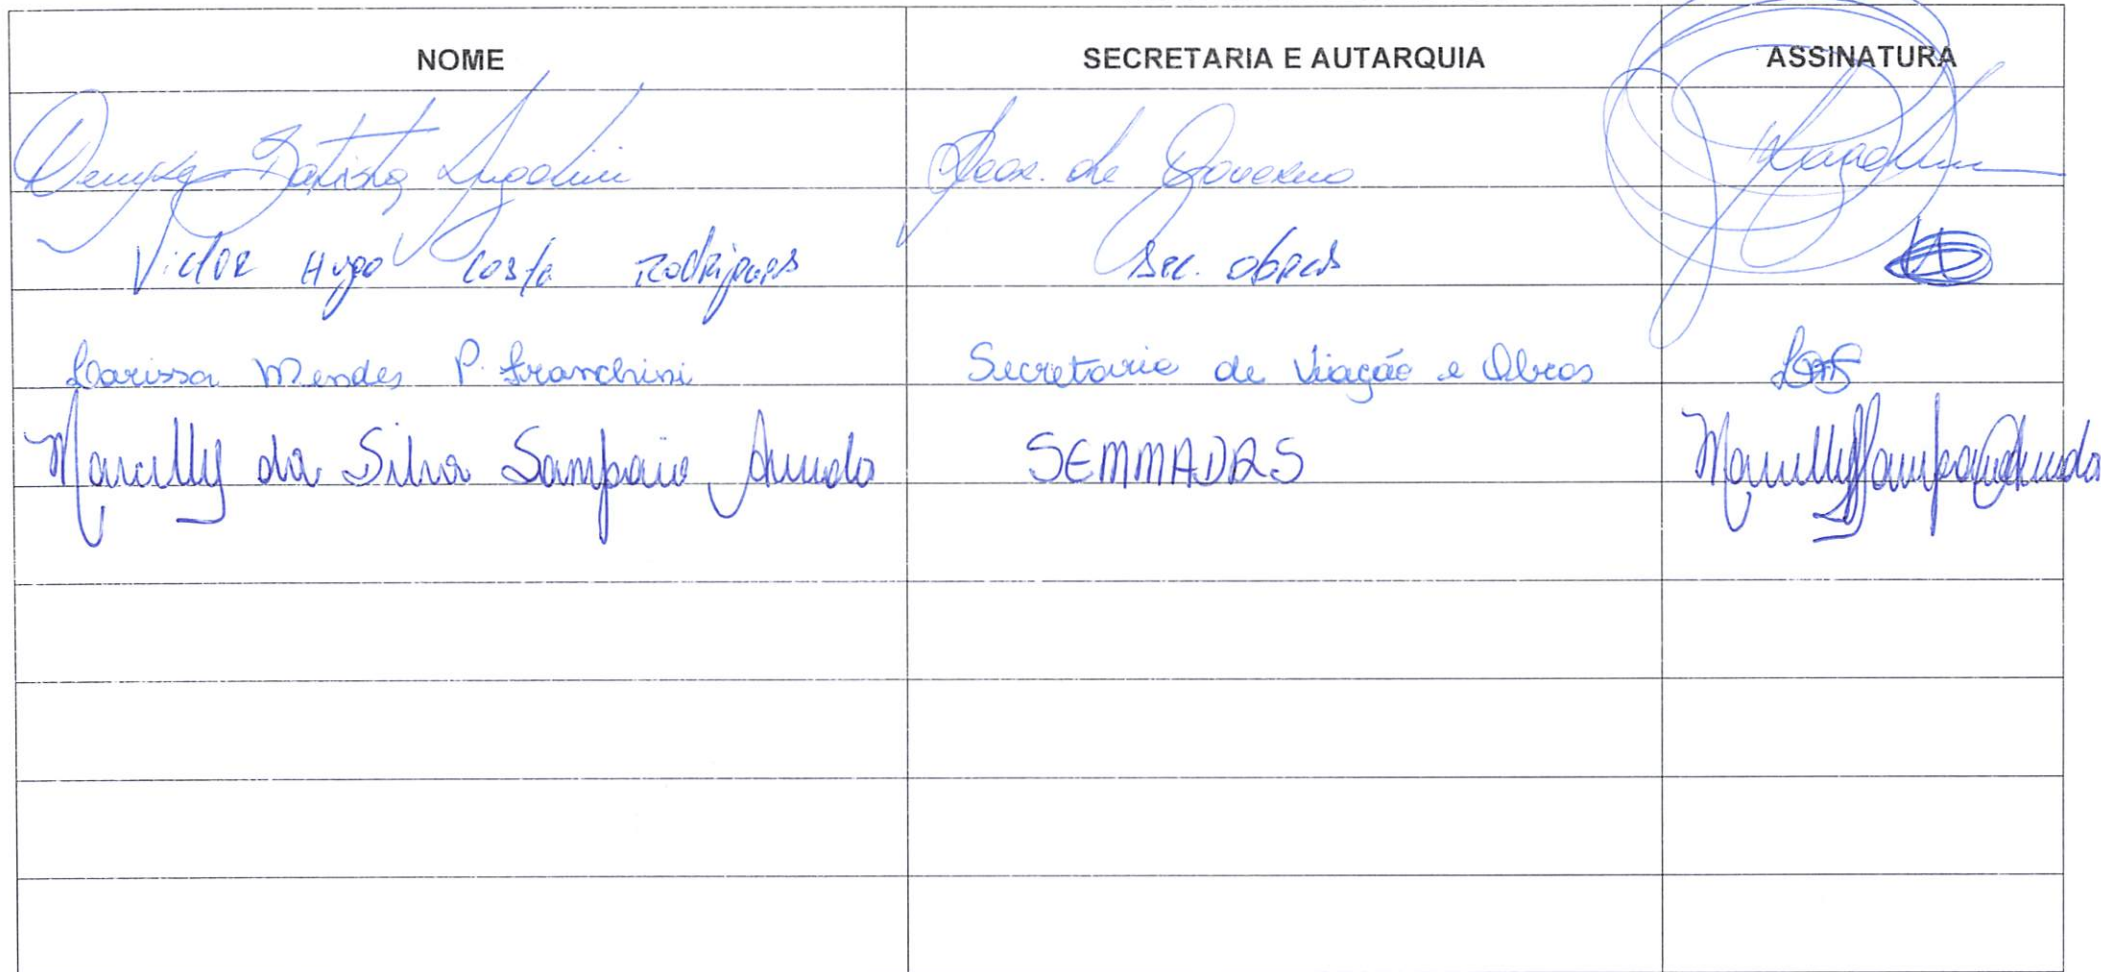 NOME SECRETARIA E AUTARQUIA ASSINATURA
Batista Sec. de Governo
Victor Hugo Costa Rodrigues Sec. obras
Larissa Mendes P. Franchini Secretaria de Viação e Obras
Marcelly da Silva Sampaio Arruda SEMMADRS